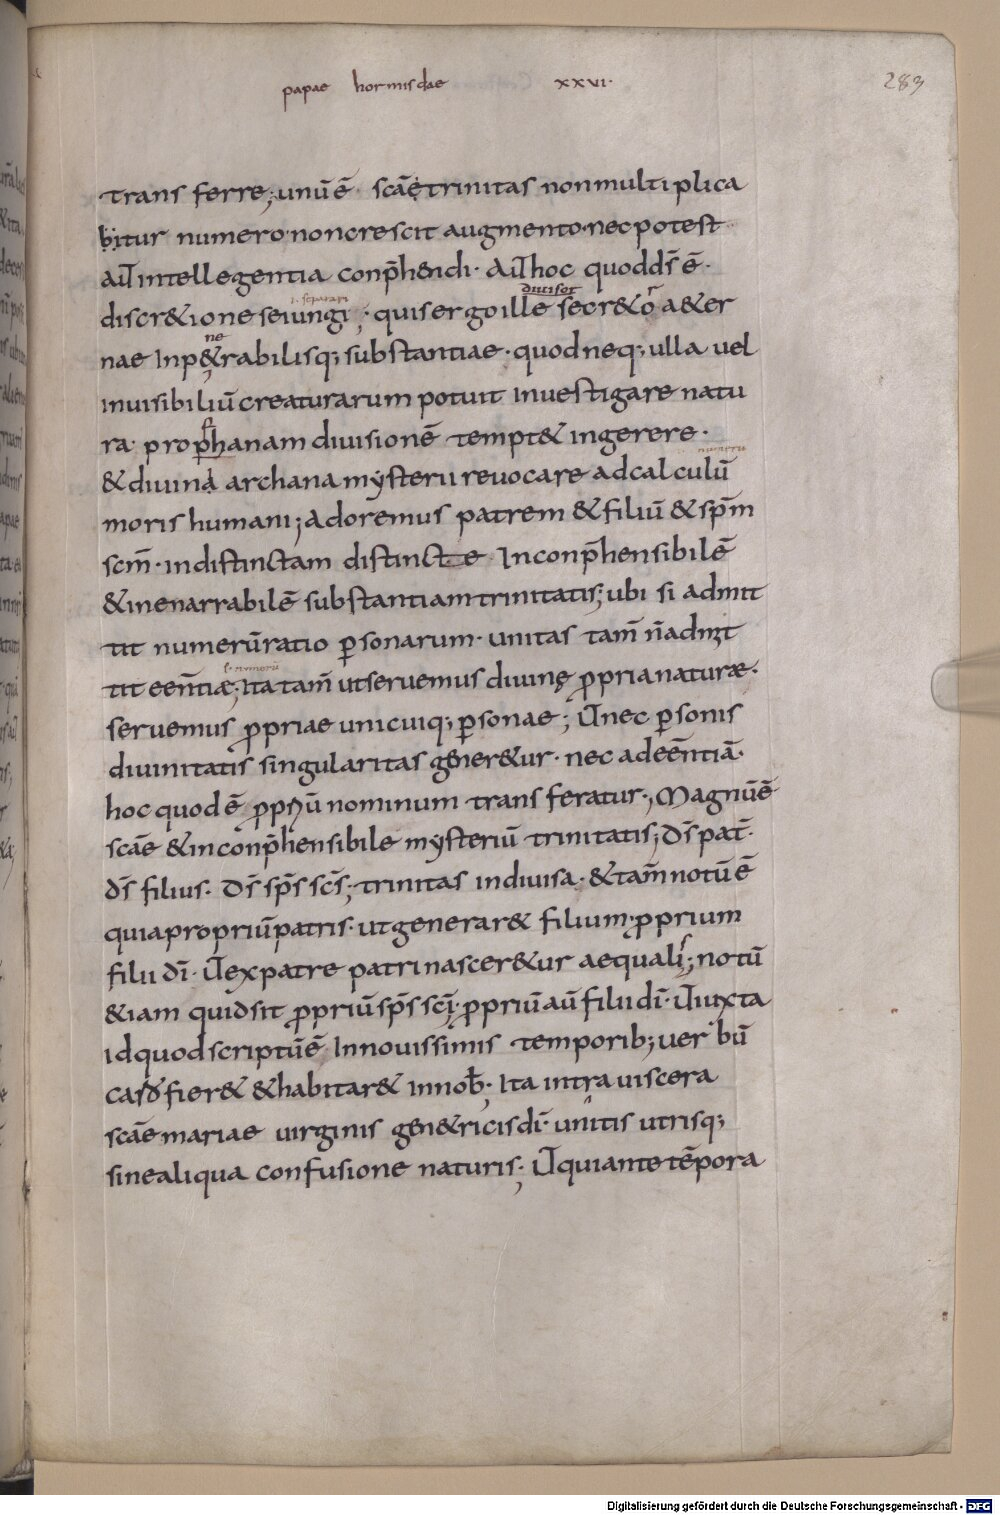 papae hormisdae xxvi·
283
trans ferre; unū ē· scāe trinitas non multiplica
bitur numero· non crescit augmento· nec potest
aut intellegentia conp̄hendi· aut hoc quod d̄s ē·
i· separari diuisor
discr&ione seiungi; quis ergo ille secr&or a&er
ne
nae Inp&rabilisq; substantiae· quod neq; ulla uel
inuisibiliū creaturarum potuit inuestigare natu
ra· prophanam diuisionē tempt& ingerere·
& diuina archana mysterii reuocare ad calculū
moris humani; Adoremus patrem & filiū & sp̄m
scm̄· indistinctam distincte Inconp̄hensibilē
& inenarrabilē substantiam trinitatis; ubi si admit
tit numerū ratio p̱sonarum· unitas tam̄ n̄ admit
s· numerū
tit eentiæ; Ita tam̄ ut seruemus diuinę ꝓpria naturæ·
seruemus ꝓpriae unicuiq; p̱sonae; Ū nec p̱sonis
diuinitatis singularitas gener&ur· nec ad eentiā·
hoc quod ē ꝓpriū nominum trans feratur; Magnū ē
scāe & inconp̄hensibile mysteriū trinitatis; d̄s pat̄·
d̄s filius· D̄s sp̄s sc̄s; trinitas indiuisa· & tam̄ notū ē
quia propriū patris· ut generar& filium· ꝓprium
filii dī· Ū ex patre patri nascer&ur aequalis; notū
&iam quid sit ꝓpriū sp̄s scī; ꝓpriū aū filii dī· Ū iuxta
id quod scriptū ē In nouissimis temporib; uerbū
caro fier& & habitar& in nob̄; Ita intra uiscera
scāe mariae uirginis gen&ricis dī· unitis utrisq;
sine aliqua confusione naturis; Ū qui ante tēpora
Digitalisierung gefördert durch die Deutsche Forschungsgemeinschaft - DFG